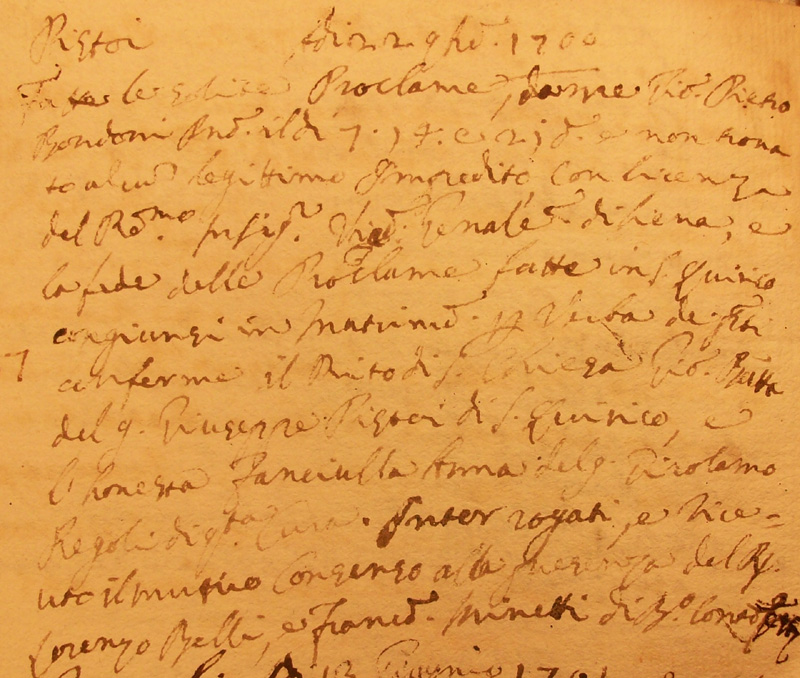 Pistoi Adi 22 9bre. 1700
Fatte le solite Proclame, da me Gio. Pietro
Bondoni il di 7. 14. e 21 d. e non trova
to alcun legittimo Impedito, con licenza
del Re.mo Vic. Genale. di Siena, e
la fede delle Proclame fatte in S. Quirico
congiunsi in Matrim. p Verba de
7 conforme il Rito di S. Chiesa Gio. Batta
del q. Giuseppe Pistoi di S. Quirico, e
l'honesta Fanciulla Anna del q. Girolamo
Regoli di q.ta Cura. Interrogati, e Rice=
uto il mutuo Consenso alla presenza del
Lorenzo Belli, e Franc. Minetti di
13 Gennio 1701